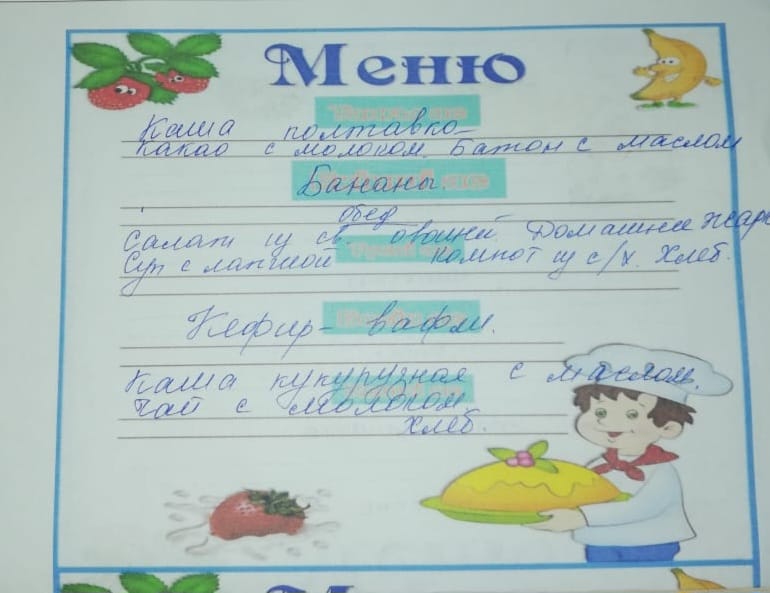 Меню
Каша полтавка
какао с молоком. Батон с маслом
Бананы.
обед
Салат из св. овощей. Домашнее жарк
Суп с лапшой компот из с/х. Хлеб.
Кефир - вафли.
Каша кукурузная с маслом.
Чай с молоком
хлеб.